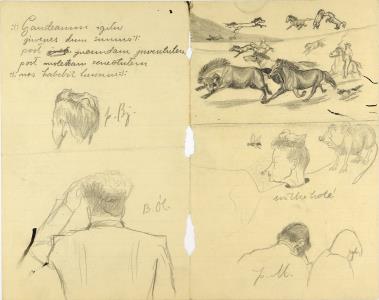 :/: Gaudeamus igitur
juvenes dum sumus :/:
post jucundam juventutem
post molestam senectutem
:/: nos habebit humus :/:
p. Bj.
B. Ól.
p. M.